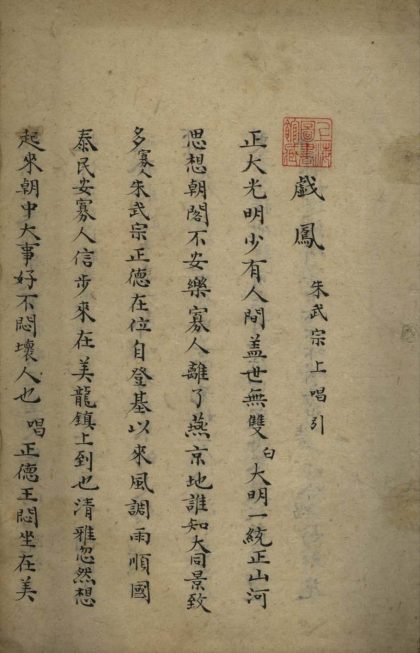 戲鳳 朱武宗上唱引
正大光明少有人間盖世無雙 白 大明一統正山河
思想朝閣不安樂寡人離了燕京地誰知大同景致
多 寡人朱武宗正德在位自登基以來風調雨順國
泰民安寡人信步來在美龍鎮上到也清雅忽然想
起來朝中大事好不悶壞人也 唱 正德王悶坐在美
上海圖書館藏